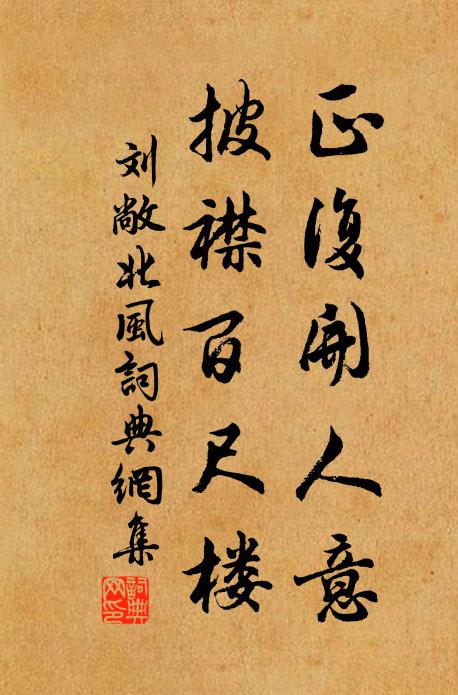 正復開人意
披襟百尺楼
刘敞北風詞典網集
詞典网印